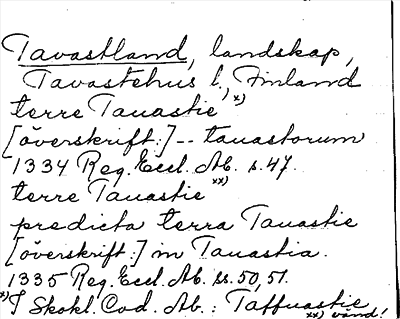 Tavastland, landskap,
Tavastehus l., Finland
terre Tauastie x)
[överskrift:] -- tauastorum
1334 Reg. Eccl. Ab. s. 47.
terre Tauastie xx)
predicta terra Tauastie
[överskrift:] in Tauastia.
1335 Reg. Eccl. Ab. ss. 50, 51.
x) I Skokl. Cod. Ab.: Taffuastie
xx) vänd!